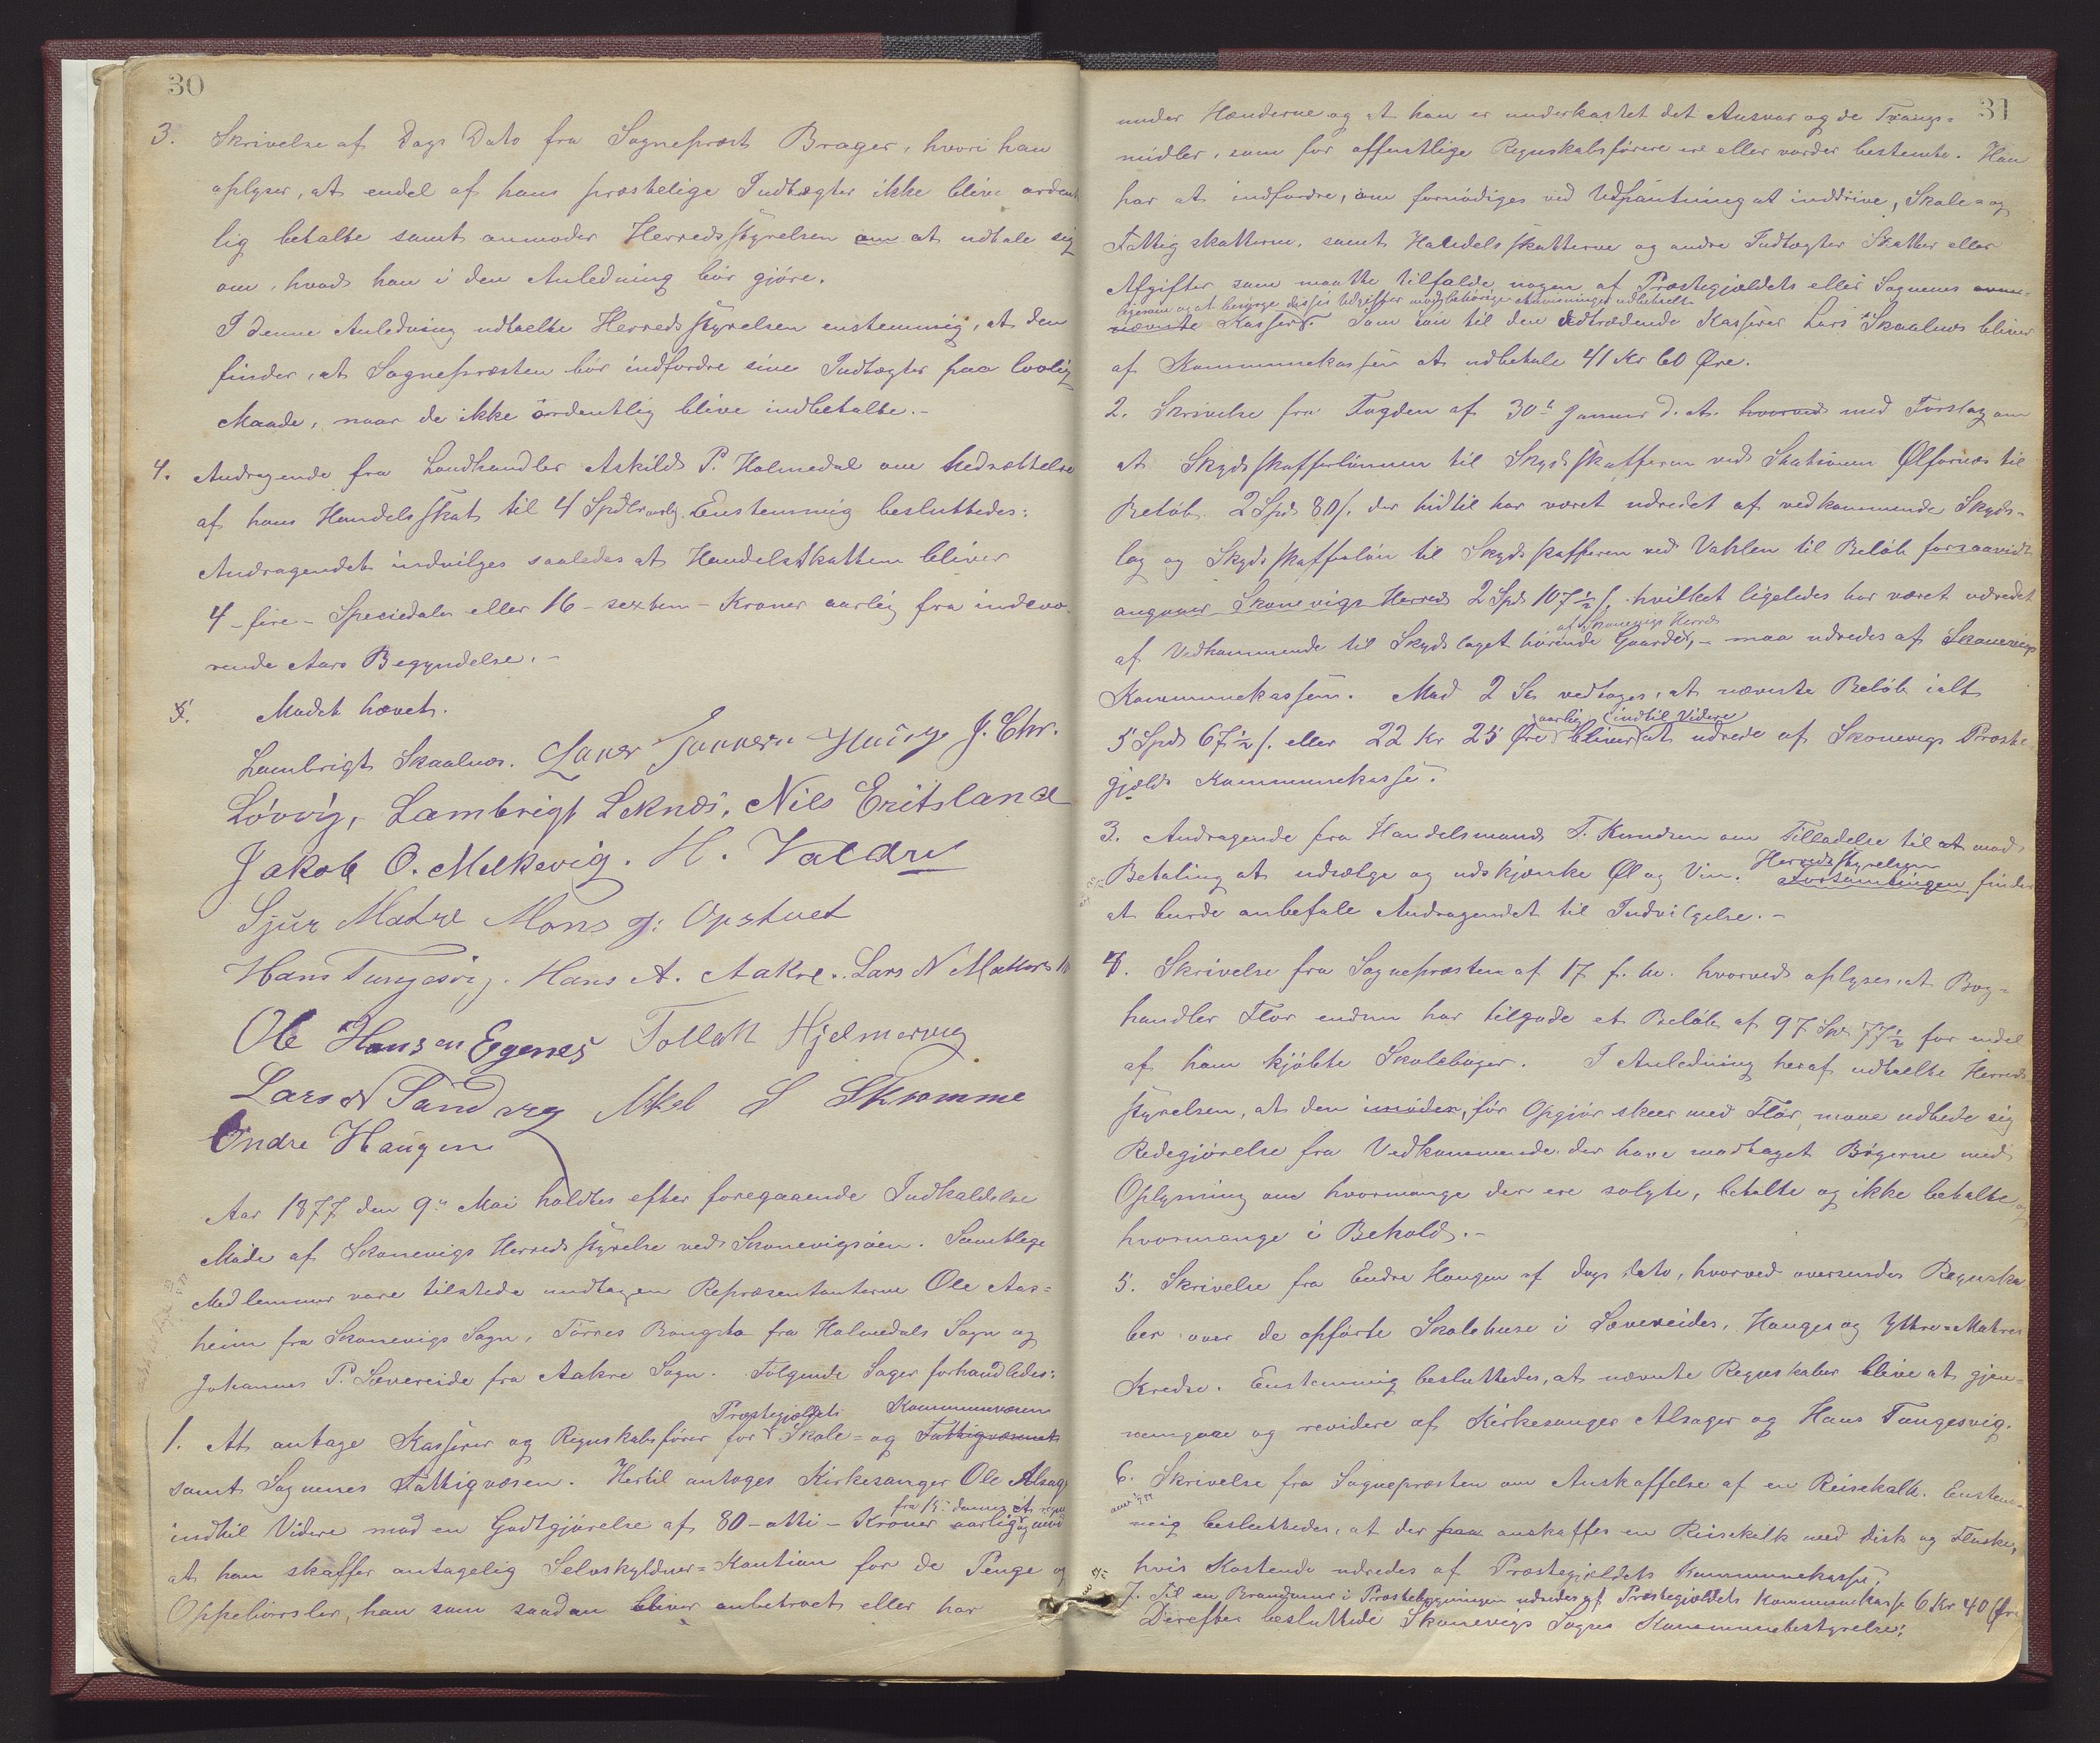 30
3. Skrivelse af Dags Dato fra Sognepræst Brager, hvori han
oplyser, at endel af hans præstelige Indtægter ikke blive ordent
lig betalte samt anmoder Herredsstyrelsen om at udtale sig
om, hvad han i den Anledning bør gjøre.
I denne Anledning udtalte Herredsstyrelsen enstemmig, at den
finder, at Sognepræsten bør indfordre sine Indtægter paa lovlig
Maade, naar de ikke ordentlig blive indbetalte.-
4. Andragende fra Landhandler Askild P. Holmedal om Nedsættelse
af hans Handelsskat til 4 Spdlr aarlg. Enstemmig besluttedes:
Andragendet indvilges saaledes at Handelsskatten bliver
4 - fire - Speciedaler eller 16 - sexten - Kroner aarlig fra indevæ
rende Aars Begyndelse.-
5. Mødet hævet.
Lambrigt Skaalnes. J. Chr.
Løvvig, Lambrigt Leknes, Nils Eritsland
Jakob O. Melkevig. H. Valdre
Sjur Matre Mons J: Opstuet
Hans Tungesvig. Hans A. Aakre. Lars N Matters
Ole Hansen Egenes Tollak Hjelmervig
Lars N Sandvig Mkel S Skromme
Endre Haugen
Aar 1877 den 9de Mai holdtes efter foregaaende Indkaldelse
Møde af Skonevigs Herredsstyrelse ved Skonevigsøen. Samtlige
Medlemmer vare tilstede undtagen Repræsentanterne Ole Aas=
heim fra Skonevigs Sogn, Tørres Bongsta fra Holmedals Sogn og
Johannes P. Sævereide fra Aakre Sogn. Følgende Sager forhandledes:
Præstegjældets Kommunevæsen
1. At antage Kasserer og Regnskabsfører for Skole= og Fattigvæsenet
samt Sognenes Fattigvæsen. Hertil antoges Kirkesanger Ole Alsager
fra 1ste Januar
indtil Videre mod en Godtgjørelse af 80 - otti - Kroner aarlig og mod
at han skaffer antagelig Selvskyldner=Kaution for de Penge og
Oppebørsler, han som saadan bliver anbetroet eller har
31
under Hænderne og at han er underkastet det Ansvar og de Tvangs=
midler, som for offentlige Regnskabsførere ere eller vorder bestemte. Han
har at indfordre, om fornødiges ved Udpantning at inddrive, Skole= og
Fattigskatterne, samt Handelsskatterne og andre Indtægter Skatter eller
Afgifter som maatte tilfalde nogen af Præstegjældets eller Sognenes
ligesom og at besørge disses Udgifter mod behørige Anvisninger udbetalt
nævnte Kasser. Som Løn til den udtrædende Kasserer Lars Skaalnes bliver
af Kommunekassen at udbetale 41 Kr 60 Øre.
2. Skrivelse fra Fogden af 30te Januar d. A. hvorved med Forslag om
at Skydsskafferlønnen til Skydsskafferen ved Stationen Ølfernæs til
Beløb 2 Spd 80 s. der hidtil har været udredet af vedkommende Skyds=
lag og Skydsskafferløn til Skydsskafferen ved Vaklen til Beløb forsaavidt
angaaer Skonevigs Herred 2 Spd 107½ s. hvilket ligeledes har været udredet
af Skonevigs Herred
af Vedkommende til Skydslaget hørende Gaarde, - maa udredes af Skonevigs
Kommunekassen. Mod 2 St. vedtoges, at nævnte Beløb ialt
aarlig indtil Videre
5 Spd 67½ s. eller 22 Kr 25 Øre bliver at udrede af Skonevigs Præste
gjælds Kommunekasse.
3. Andragende fra Handelsmand T. Knudsen om Tilladelse til at mod
Herredsstyrelsen
Betaling at udsælge og udskjænke Øl og Vin. Forsamlingen finder
at burde anbefale Andragendet til Indvilgelse.-
4. Skrivelse fra Sognepræsten af 17 f. M. hvorved oplyses, at Bog=
handler Flor endnu har tilgode et Beløb af 97 Spd 77½ for endel
af ham kjøbte Skolebøger. I Anledning heraf udtalte Herreds
styrelsen, at den imøder, før Opgjør skeer med Flor, maae udbede sig
Redegjørelse fra Vedkommende der have modtaget Bøgerne med
Oplysning om hvormange der ere solgte, betalte og ikke betalte og
hvormange i Behold.-
5. Skrivelse fra Endre Haugen af Dags Dato, hvorved oversendes Regnska
ber over de opførte Skolehuse i Sævereides, Hauges og Yttre=Matres
Kredse. Enstemmig besluttedes, at nævnte Regnskaber blive at gjen=
nemgaae og revidere af Kirkesanger Alsager og Hans Tungesvig.
6. Skrivelse fra Sognepræsten om Anskaffelse af en Reisekalk. Enstem=
mig besluttedes, at der paa anskaffes en Reisekalk med Disk og Flaske,
hvis Kostende udredes af Præstegjældets Kommunekasse.
7. Til en Brandmur i Præstebygningen udredes af Præstegjældets Kommunekasse 6 Kr 40 Øre
Derefter besluttede Skonevigs Sogns Kommunebestyrelse: